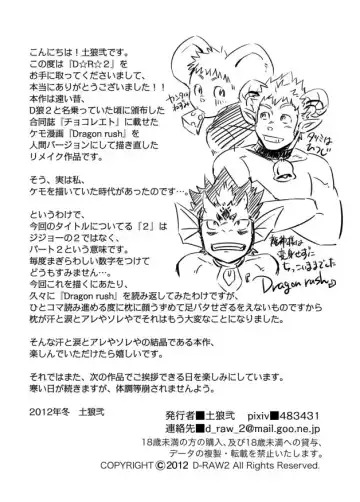 こんにちは！土狼弐です。
この度は『D☆R☆２』を
お手に取ってくださいまして、
本当にありがとうございました！！
本作は遠い昔、
D狼２と名乗っていた頃に頒布した
合同誌『チョコレエト』に載せた
ケモ漫画『Dragon rush』を
人間バージョンにして描き直した
リメイク作品です。
そう、実は私、
ケモを描いていた時代があったのです…。
というわけで、
今回のタイトルについてる『２』は
ジジョーの２ではなく、
パート２という意味です。
毎度まぎらわしい数字をつけて
どうもすみません…。
今回これを描くにあたり、
久々に『Dragon rush』を読み返してみたわけですが、
ひとコマ読み進める度に枕に顔うずめて足バタせざるをえないものですから
枕が汗と涙とアレやソレやでそれはもう大変なことになりました。
そんな汗と涙とアレやソレやの結晶である本作、
楽しんでいただけたら嬉しいです。
それではまた、次の作品でご挨拶できる日を楽しみにしています。
寒い日が続きますが、体調等崩されませんよう。
2012年冬　土狼弐
カンタは
ねずみ
タツミは
ひつじ
Dragon rush
発行者■土狼弐　pixiv■483431
連絡先■d_raw_2@mail.goo.ne.jp
18歳未満の方の購入、及び18歳未満への貸与、
データの複製・転載を禁止いたします。
COPYRIGHT Ⓒ2012 D-RAW2 All Rights Reserved.